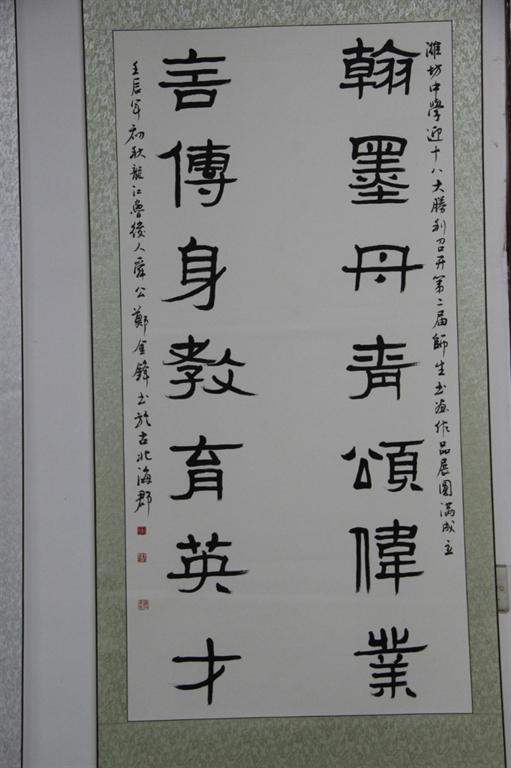 濰坊中學迎十八大勝利召开第二届師生书画作品展圓滿成立
翰墨丹青頌偉業
言傳身教育英才
壬辰年初秋龍江魯後人舜公鄭金鋒书於古北海郡